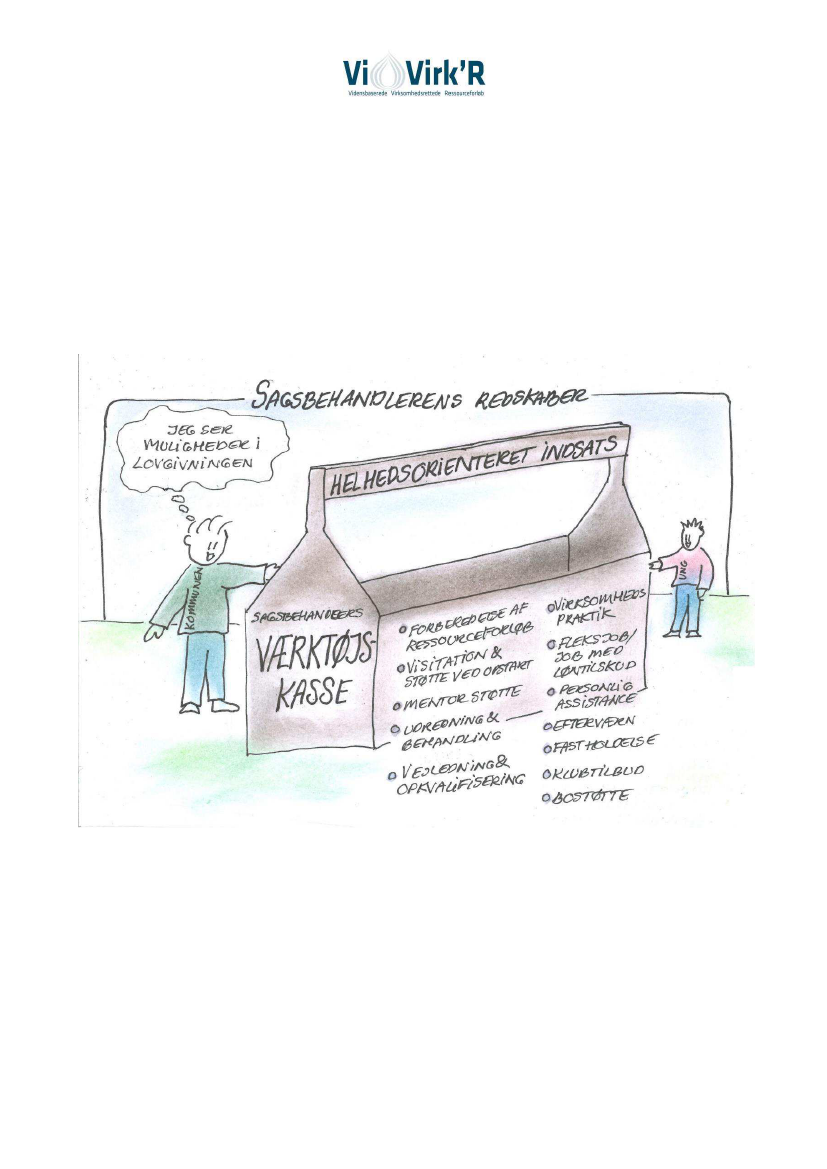 Vi Virk'R
Vidensbaserede Virksomhedsrettede Ressourceforløb
SAGSBEHANDLERENS REDSKABER
JEG SER
MULIGHEDER I
LOVGIVNINGEN
HELHEDSORIENTERET INDSATS
KOMMUNEN
UNG
SAGSBEHANDLERS
VÆRKTØJS-
KASSE
FORBEREDELSE AF
RESSOURCEFORLØB
VISITATION &
STØTTE VED OPSTART
MENTOR STØTTE
UDREDNING &
BEHANDLING
VEJLEDNING &
OPKVALIFISERING
VIRKSOMHEDS
PRAKTIK
FLEKSJOB/
JOB MED
LØNTILSKUD
PERSONLIG
ASSISTANCE
EFTERVÆRN
FASTHOLDELSE
KLUBTILBUD
BOSTØTTE